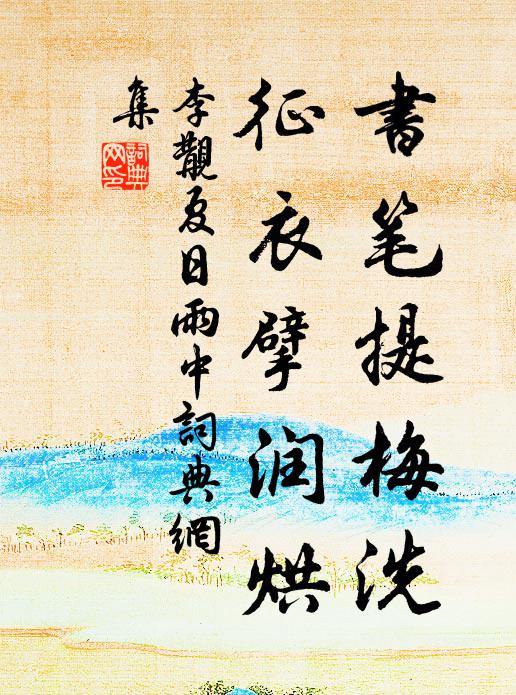 書笔提梅洗
征衣擘润烘
李覯夏日雨中詞典網
集
詞典网印